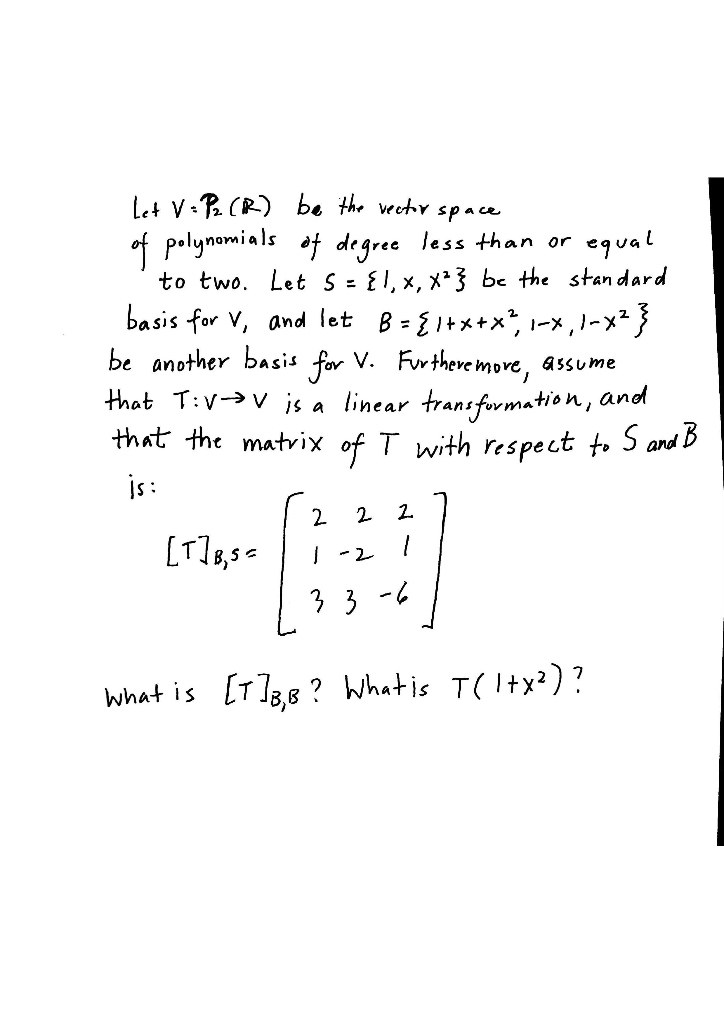 Let V=P₂(R) be the vector space
of polynomials of degree less than or equal
to two. Let S = {1, x, x²} be the standard
basis for V, and let B = {1+x+x², 1-x, 1-x²}
be another basis for V. Furtheremore, assume
that T:V→V is a linear transformation, and
that the matrix of T with respect to S and B
is:
[T]B,S = [2 2 2
1 -2 1
3 3 -6]
What is [T]B,B? What is T(1+x²)?